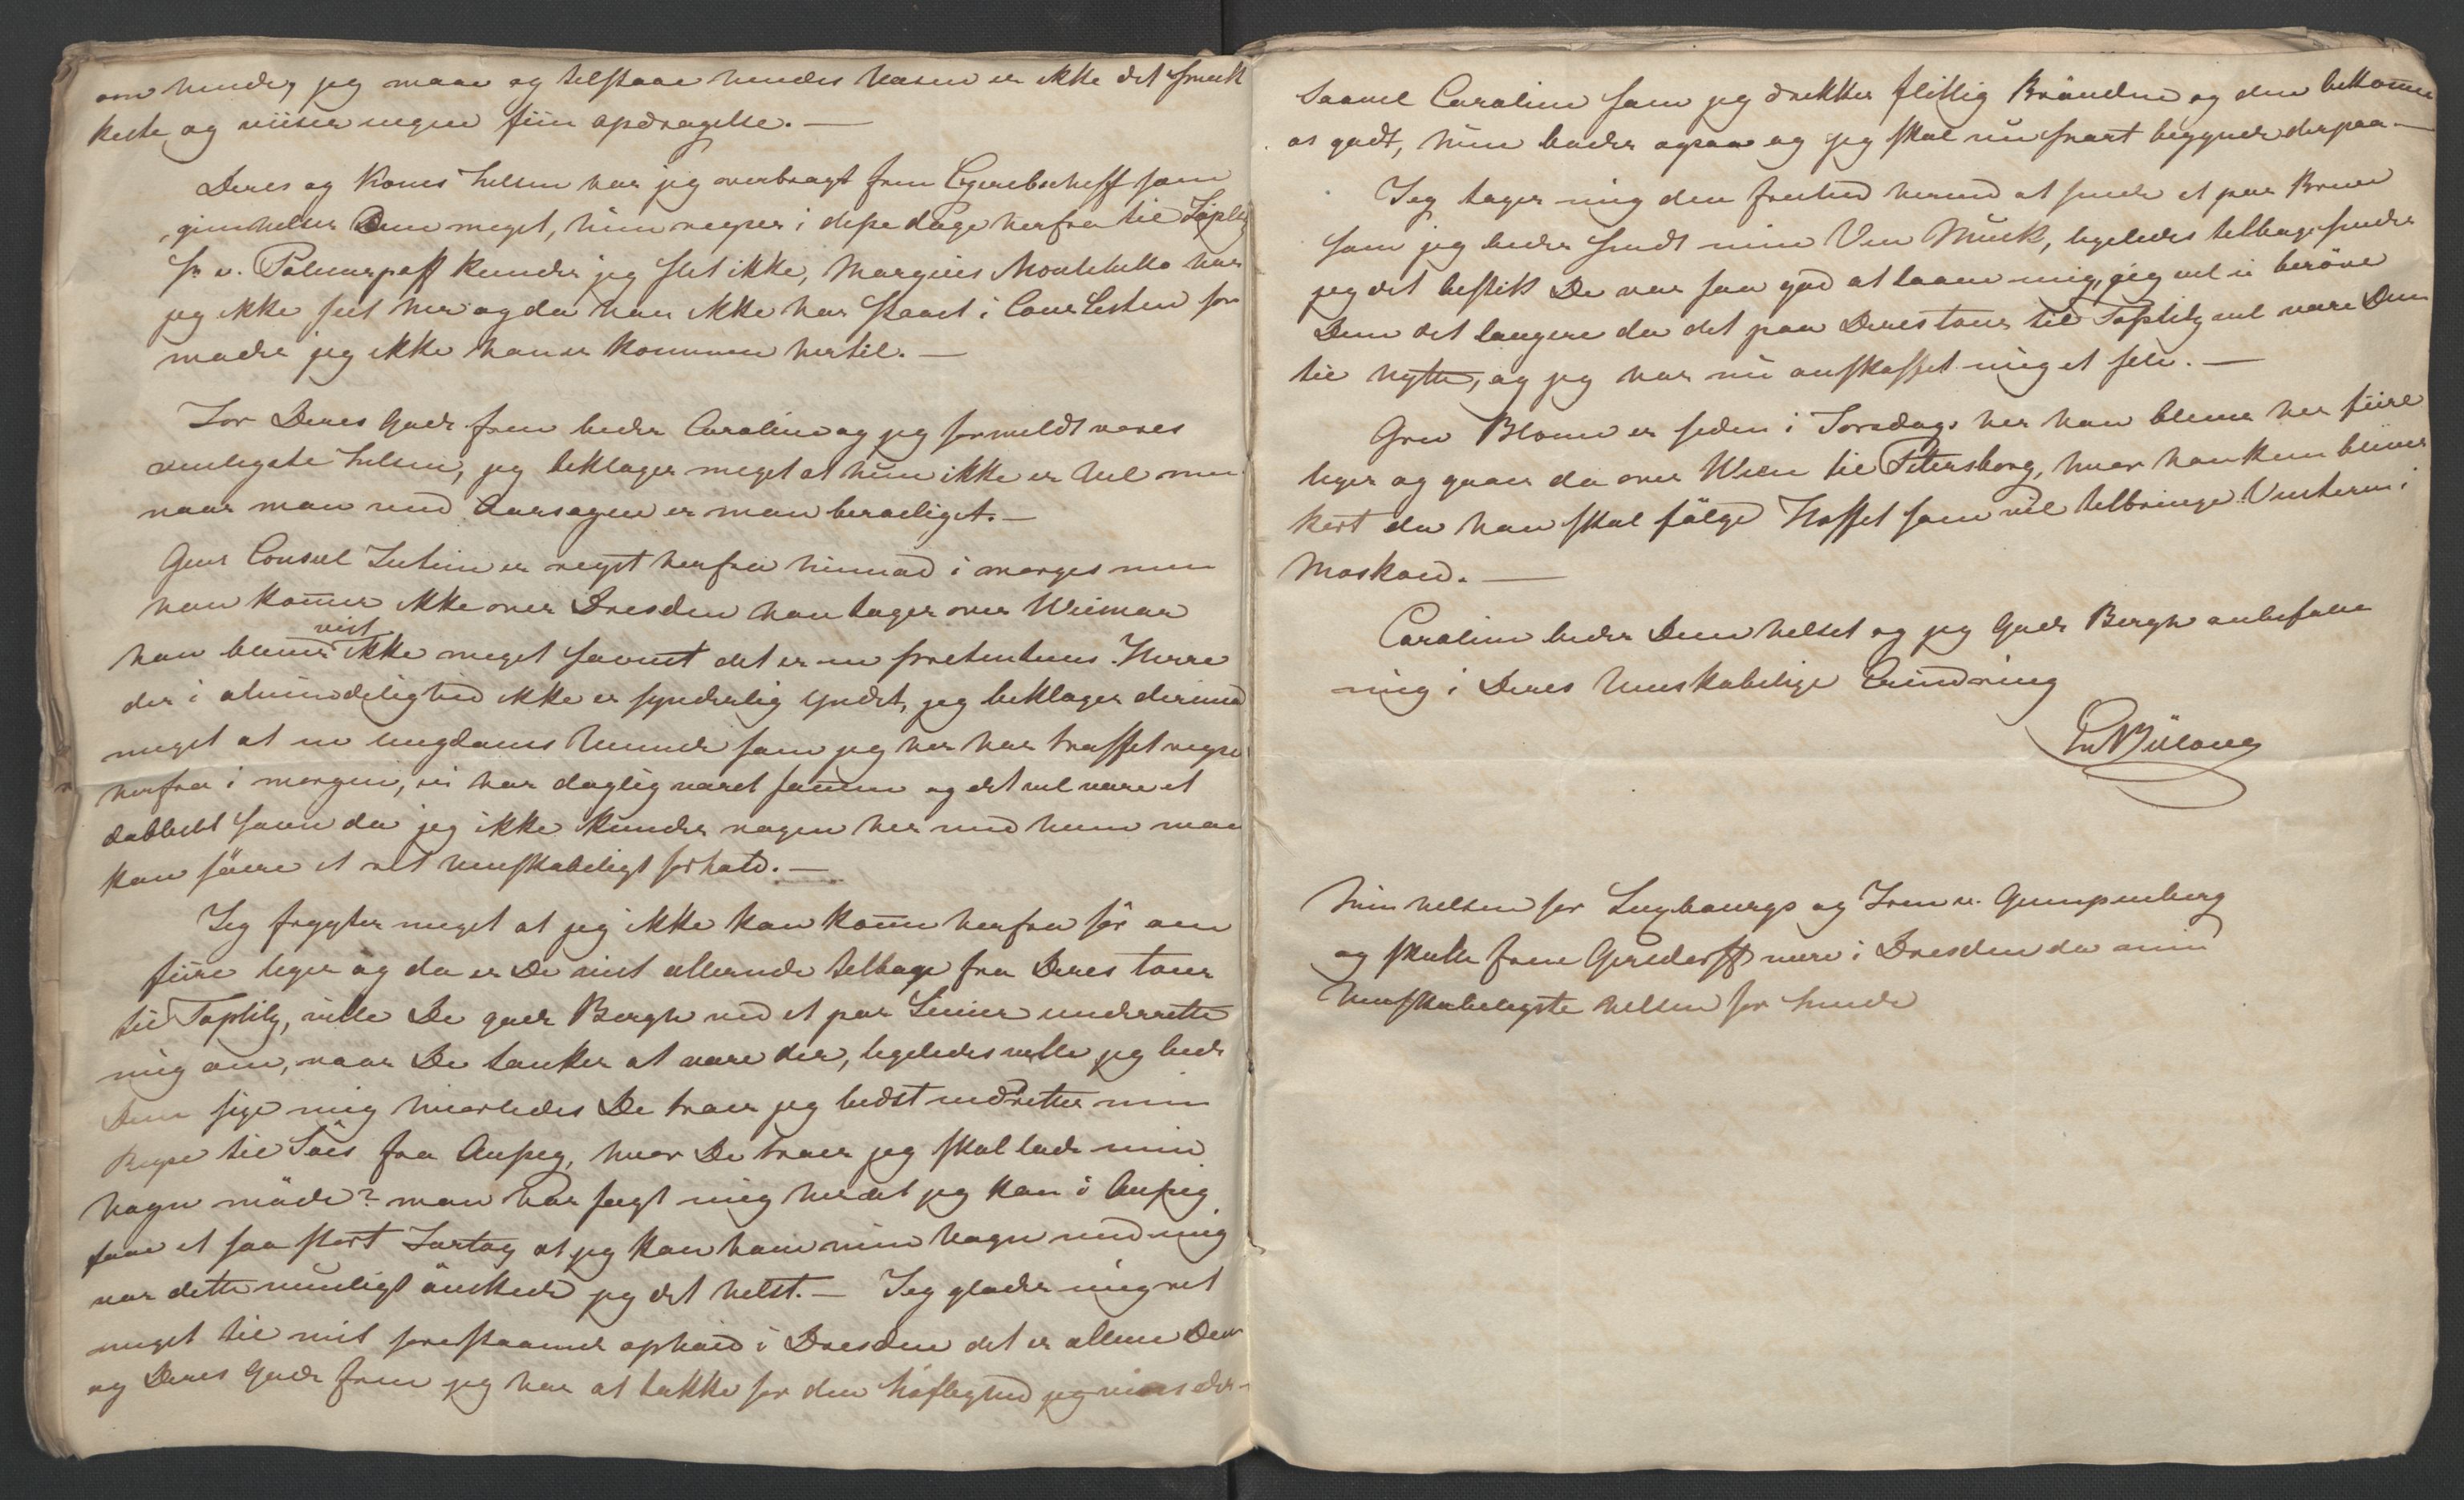 om hende, jeg maae og tilstaae hendes Væsen er ikke det smuk
keste, og viiser ingen fiin opdragelse. —
Deres og Kones hilsen har jeg overbragt frue som
gienhilser Dem meget, hun reyser i disse dage herfra til Töplitz
kiender jeg slet ikke, Marquis har
jeg ikke seet her og da han ikke har staaet i Cour Listen for
moder jeg ikke han er kommen hertil. —
For Deres gode frue beder Caroline og jeg formeldt vores
venligste hilsen, jeg beklager meget at hun ikke er vel men
naar man veed Aarsagen er man beroeliget. —
Gen: Consul er reyst herfra hiemad i morges men
han kom̄er ikke over Dresden han tager over Weimar
han bliver vist ikke meget savnet det er en pretentieus Herre
der i almindelighed ikke er synderlig yndet, jeg beklager derimod
meget at en ungdoms Veninde som jeg her har truffet reyser
herfra i morgen, vi har daglig været sam̄en og det vil være et
dobbelt savn da jeg ikke kiender nogen her med hvem man
kan føre et ret venskabeligt forhold. —
Jeg frygter meget at jeg ikke kan kom̄e herfra før om
fiire uger og da er De vist allerede tilbage fra Deres tour
til Töplitz, ville De gode Bergh med et par Linier underrette
mig om, naar De tænker at være der, ligeledes ville jeg bede
Dem sige mig hvorledes De troer jeg bedst indretter min
Reyse til Søes fra Aussig, hvor De troer jeg skal lade min
Vogn møde? man har sagt mig her at jeg kan i Aussig
faae et saa stort Fartøy at jeg kan have min Vogn med mig
var dette mueligt ønskede jeg det helst. — Jeg glæder mig ret
meget til mit forestaaende ophold i Dresden det er allene Dem
og Deres gode frue jeg har at takke for den høflighed jeg viises der —
Saavel Caroline som jeg drikker flittig Brønden og den bekom̄er
os godt, hun bader ogsaa og jeg skal nu snart begynde derpaa —
Jeg tager mig den frihed herved at sende et par Breve
som jeg beder sendt min Ven Munk, ligeledes tilbagesender
jeg det bestik De var saa god at laane mig, jeg vil ei berøve
Dem det længere da det paa Deres tour til Töplitz vil være Dem
til nytte, og jeg har nu anskaffet mig et selv. —
Grev Blome er siden i Torsdags her han bliver her fiire
uger og gaaer da over Wien til Petersborg, hvor han kun bliver
kort da han skal følge Hoffet som vil tilbringe Vinteren i
Moskow. —
Caroline beder Dem hilset og jeg gode Bergh anbefaler
mig i Deres Venskabelige Erindring
Bülow
Min hilsen for Luxbourgs og Frue v. Gumpenberg
og skulle frue Gersdorff være i Dresden da min
Venskabeligste hilsen for hende